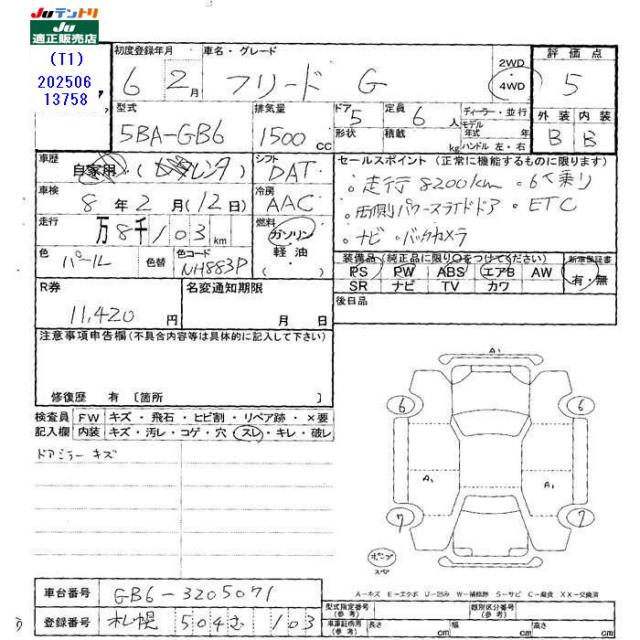 Juテントリ
Ju
適正販売店
(T1)
202506
13758
初度登録年月
6 2月
車名・グレード
フリード G
2WD
・4WD
評価点
5
外装 内装
B B
型式
5BA-GB6
排気量
1500 cc
ドア 5
形状
定員 6 人
積載 kg
ディーラー・並行
モデル年式 年
ハンドル 左・右
車歴
自家用・(レンタ)
シフト
DAT
セールスポイント(正常に機能するものに限ります)
・走行8200km ・6人乗り
・両側パワースライドドア ・ETC
・ナビ・バックカメラ
車検
8年2月(12日)
冷房
AAC
走行
万8千103km
燃料
ガソリン
軽油
色
パール
色替
色コード
NH883P
装備品(純正品に限り○をつけてください)
PS PW ABS エアB AW
SR ナビ TV カワ
新車保証書
有・無
R券
11,420円
名変通知期限
月 日
後日品
注意事項申告欄(不具合内容等は具体的に記入して下さい)
修復歴 有〔箇所 〕
検査員 FW キズ・飛石・ヒビ割・リペア跡・×要
記入欄 内装 キズ・汚レ・コゲ・穴・スレ・キレ・破レ
ドアミラーキズ
A1
6 6
A1 A1
7 7
A-キズ E-エクボ U-凹み W-補修跡 S-サビ C-腐食 XX-交換済
車台番号
GB6-3205071
登録番号
札幌 504 む 103
型式指定番号(参考)
類別区分番号(参考)
車庫証明用(参考)
長さ cm 幅 cm 高さ cm